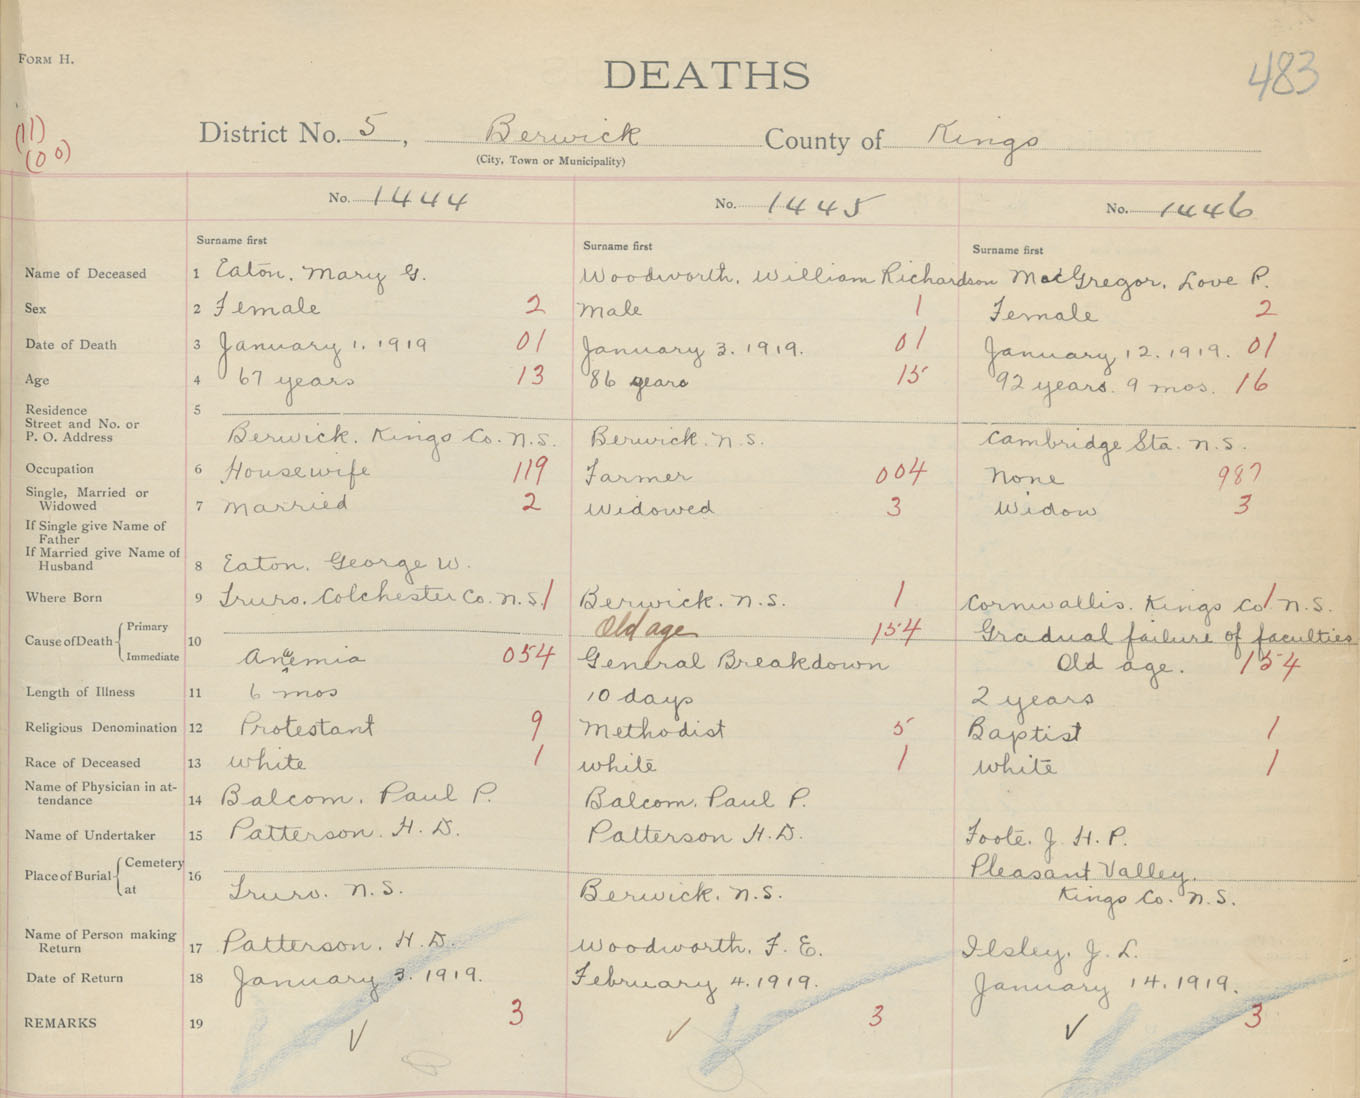 FORM H.
DEATHS
483
(11)
(00)
District No. 5, Berwick County of Kings
(City, Town or Municipality)
No. 1444 No. 1445 No. 1446
Surname first Surname first Surname first
Name of Deceased 1 Eaton, Mary G. Woodworth, William Richardson MacGregor, Love P.
Sex 2 Female 2 Male 1 Female 2
Date of Death 3 January 1, 1919 01 January 3. 1919. 01 January 12. 1919. 01
Age 4 67 years 13 86 years 15 92 years. 9 mos. 16
Residence 5
Street and No. or
P. O. Address Berwick. Kings Co. N.S. Berwick. N.S. Cambridge Sta. N.S.
Occupation 6 Housewife 119 Farmer 004 None 987
Single, Married or
Widowed 7 Married 2 Widowed 3 Widow 3
If Single give Name of
Father
If Married give Name of
Husband 8 Eaton, George W.
Where Born 9 Truro. Colchester Co. N.S. 1 Berwick. N.S. 1 Cornwallis. Kings Co. N.S. 1
Cause of Death Primary 10 Old age 154 Gradual failure of faculties
Immediate Anaemia 054 General Breakdown Old age. 154
Length of Illness 11 6 mos 10 days 2 years
Religious Denomination 12 Protestant 9 Methodist 5 Baptist 1
Race of Deceased 13 White 1 White 1 White 1
Name of Physician in at-
tendance 14 Balcom, Paul P. Balcom, Paul P.
Name of Undertaker 15 Patterson. H.D. Patterson H.D. Foote. J. H. P.
Place of Burial Cemetery 16 Pleasant Valley,
at Truro. N.S. Berwick. N.S. Kings Co. N.S.
Name of Person making
Return 17 Patterson, H.D. Woodworth, F. E. Ilsley, J. L.
Date of Return 18 January 3. 1919. February 4. 1919. January 14. 1919.
REMARKS 19 3 3 3